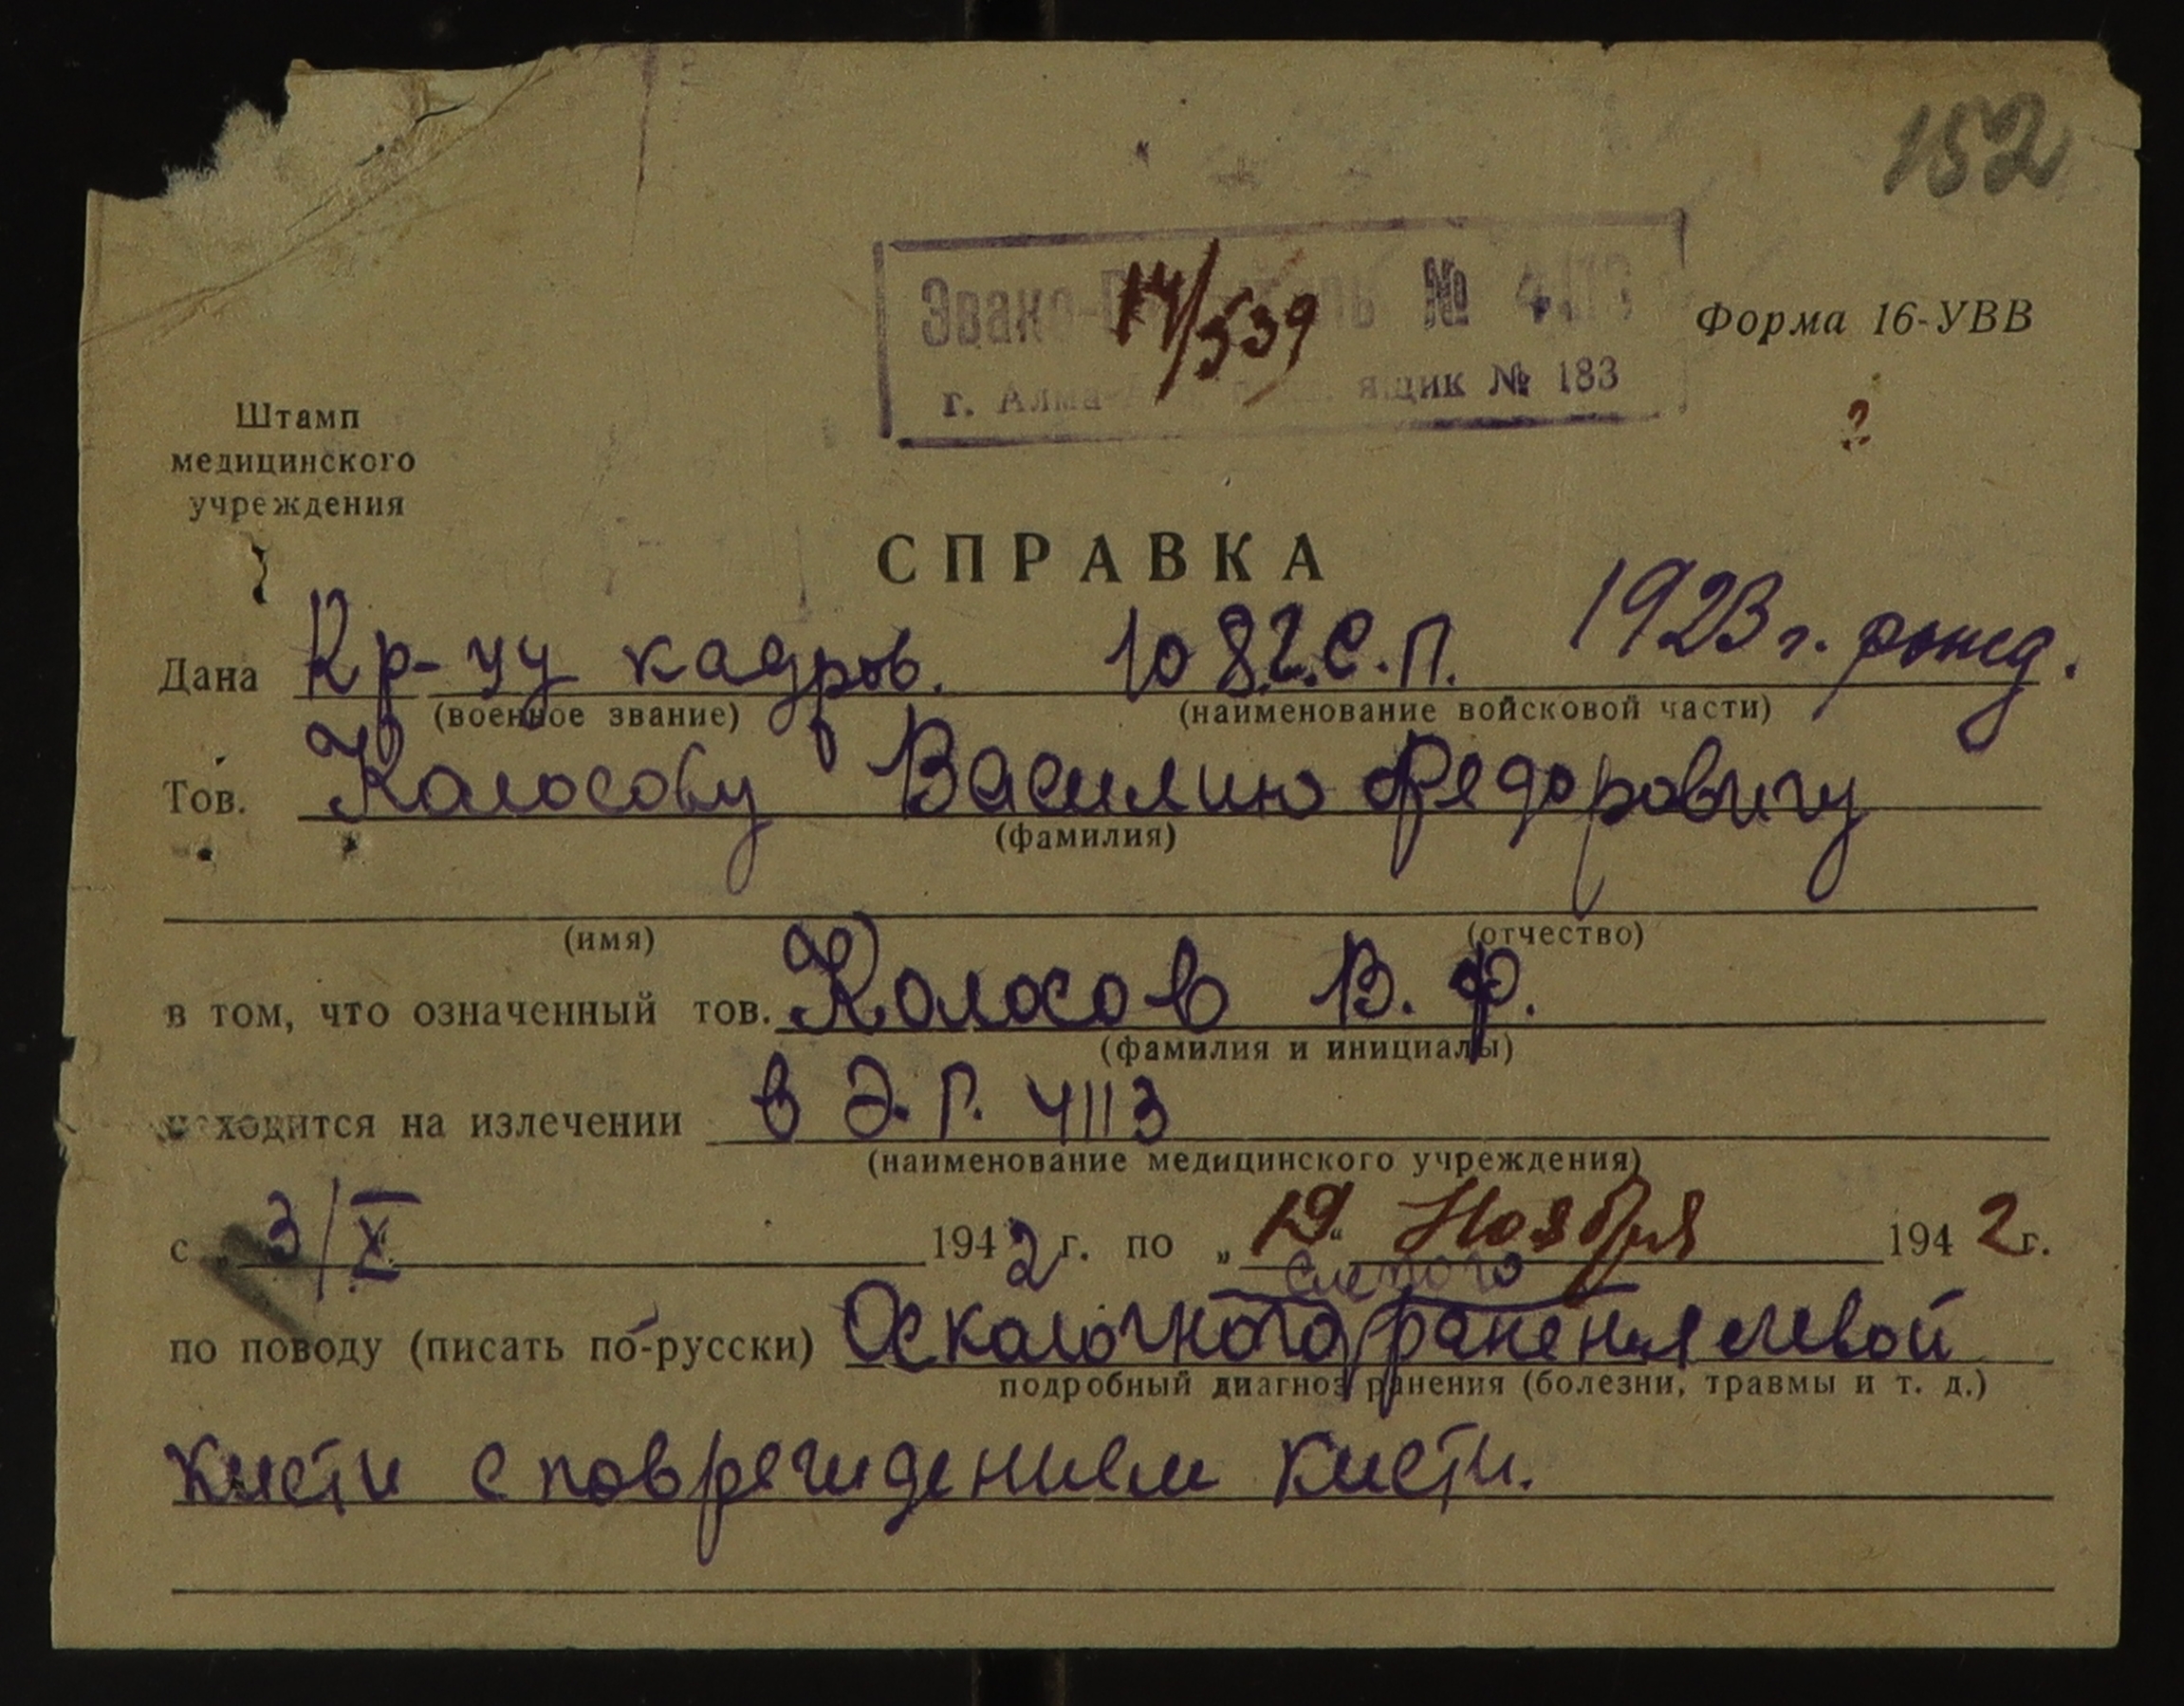 152
Эвако-Г ль № 4113
14/539
г. Алма- ящик № 183
Форма 16-УВВ
?
Штамп
медицинского
учреждения
СПРАВКА
Дана Кр-цу кадров. 1082 С.П. 1923 г. рожд.
(военное звание) (наименование войсковой части)
Тов. Колосову Василию Федоровичу
(фамилия)
(имя) (отчество)
в том, что означенный тов. Колосов В. Ф.
(фамилия и инициалы)
находится на излечении в Э.Г. 4113
(наименование медицинского учреждения)
с 3/X 1942 г. по „19“ Ноября 1942 г.
слепого
по поводу (писать по-русски) Осколочного ранения левой
подробный диагноз ранения (болезни, травмы и т. д.)
кисти с повреждением кисти.